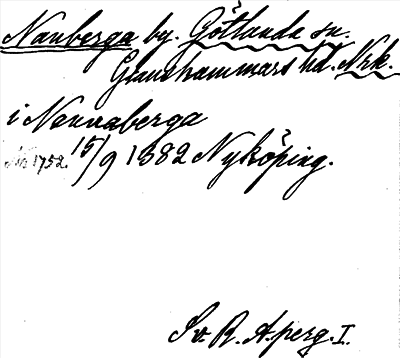 Nanberga by. Götlunda sn.
Glanshammars hd. Nrk.
i Nannaberga
Nr 1752. 15/9 1382 Nyköping.
Sv. R. A. perg. I.